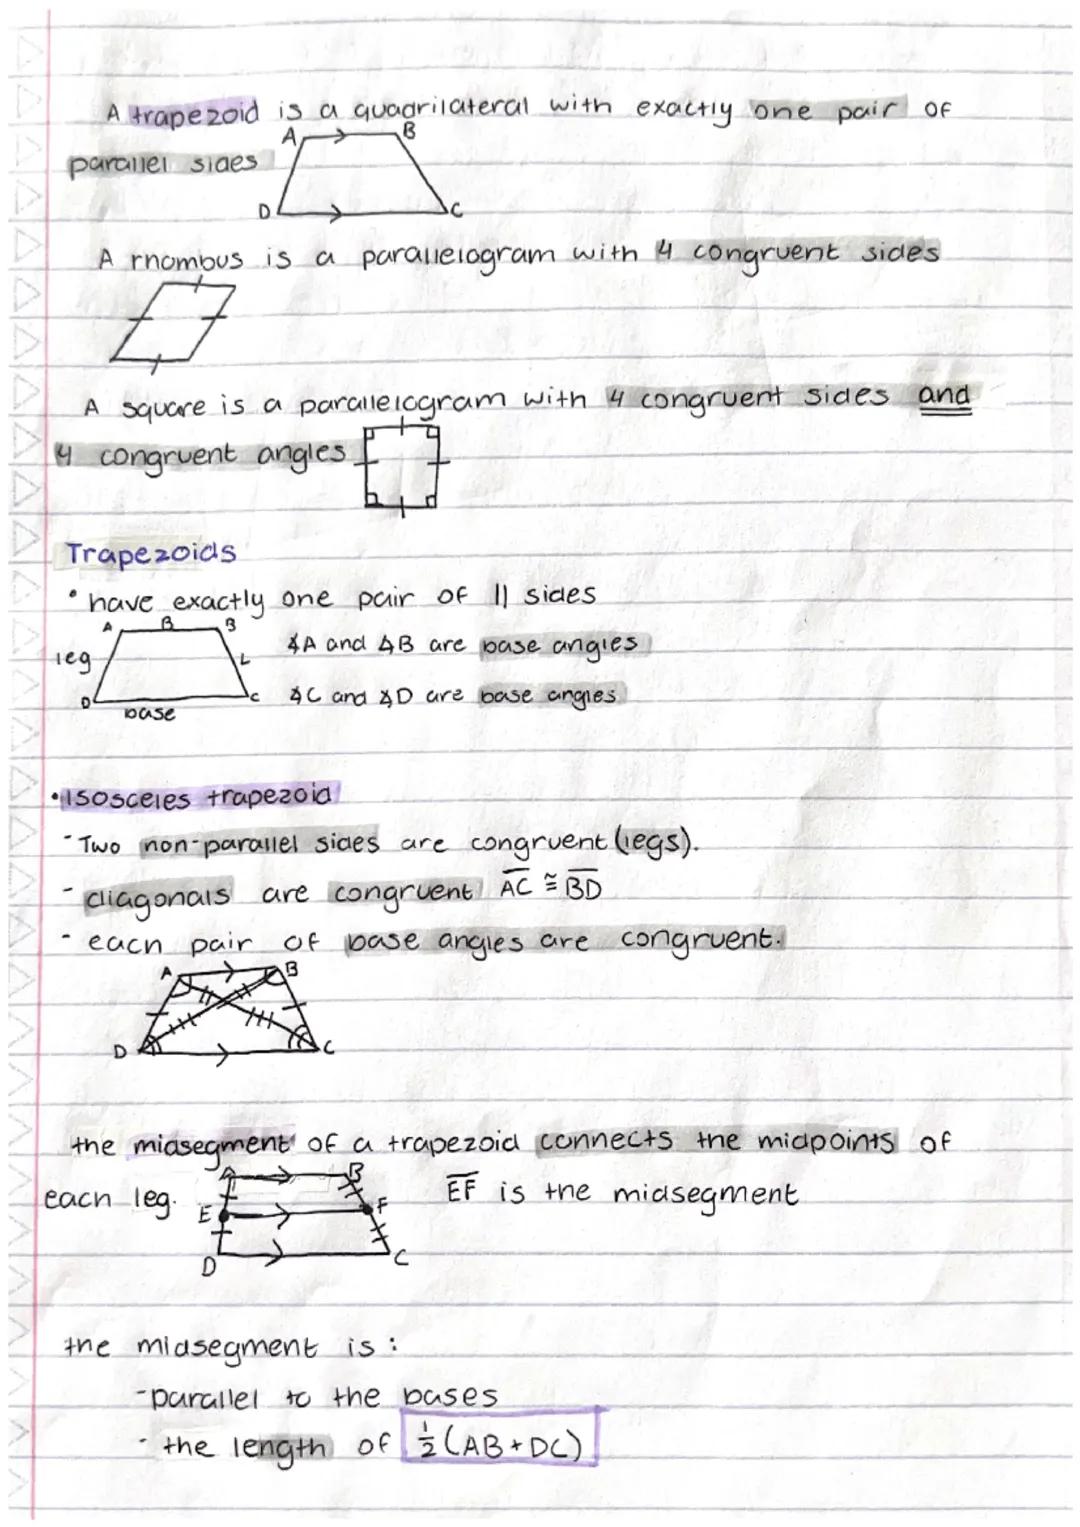 A trapezoid is a quadrilateral with exactly one pair of
A B
parallel sides
D C
A rhombus is a parallelogram with 4 congruent sides
A square is a parallelogram with 4 congruent sides and
4 congruent angles
Trapezoids
• have exactly one pair of || sides
A B B
leg L ∡A and ∡B are base angles
D C ∡C and ∡D are base angles
base
• isosceles trapezoid
- Two non-parallel sides are congruent (legs).
- diagonals are congruent AC ≅ BD
- each pair of base angles are congruent.
A B
D C
the midsegment of a trapezoid connects the midpoints of
A B
each leg. E F EF is the midsegment
D C
the midsegment is :
- parallel to the bases
- the length of 1/2 (AB + DC)